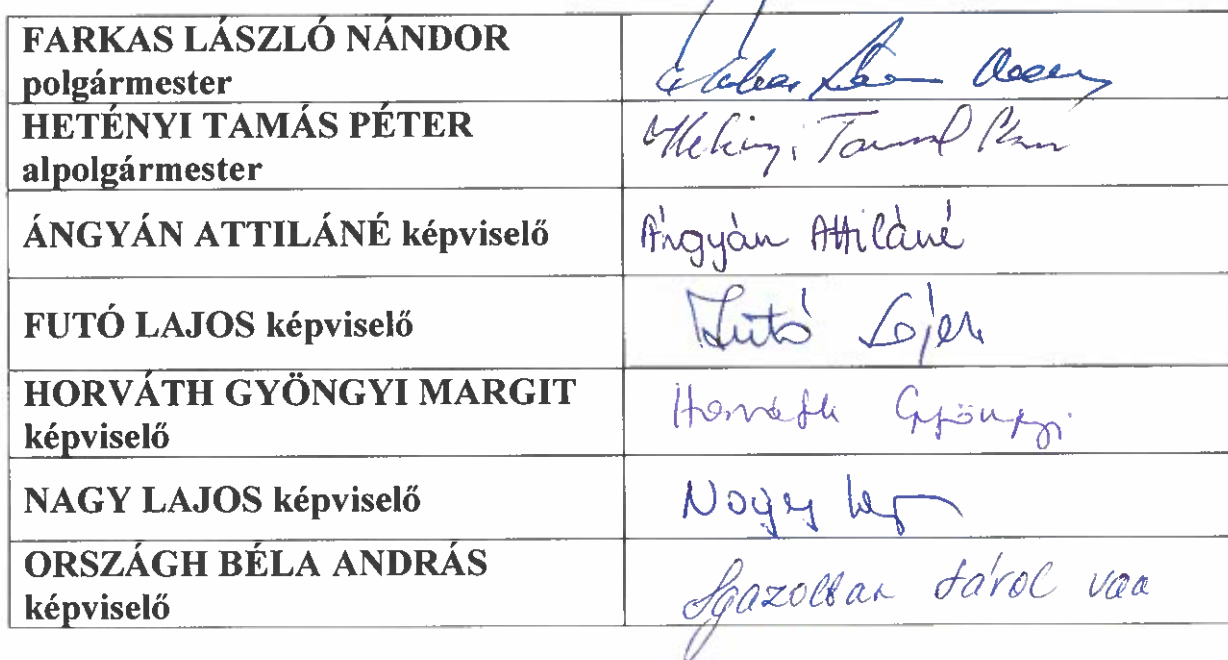 FARKAS LÁSZLÓ NÁNDOR
polgármester
HETÉNYI TAMÁS PÉTER
alpolgármester
ÁNGYÁN ATTILÁNÉ képviselő Ángyán Attiláné
FUTÓ LAJOS képviselő Futó Lajos
HORVÁTH GYÖNGYI MARGIT
képviselő Horváth Gyöngyi
NAGY LAJOS képviselő Nagy
ORSZÁGH BÉLA ANDRÁS
képviselő Igazoltan távol van